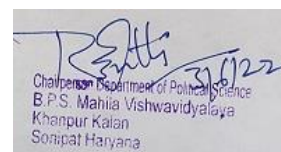 3/6/22
Chairperson Department of Political Science
B.P.S. Mahila Vishwavidyalaya
Khanpur Kalan
Sonipat Haryana